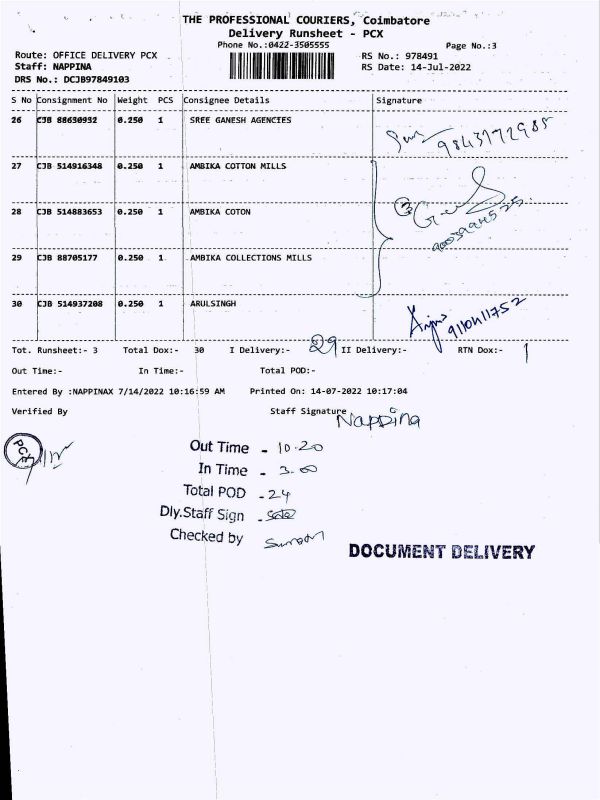 THE PROFESSIONAL COURIERS, Coimbatore
Delivery Runsheet - PCX
Phone No.:0422-3505555
Page No.:3
Route: OFFICE DELIVERY PCX
RS No.: 978491
Staff: NAPPINA
RS Date: 14-Jul-2022
DRS No.: DCJB97849103
S No Consignment No Weight PCS Consignee Details Signature
26 CJB 88630932 0.250 1 SREE GANESH AGENCIES
9843172985
27 CJB 514916348 0.250 1 AMBIKA COTTON MILLS
28 CJB 514883653 0.250 1 AMBIKA COTON
3
29 CJB 88705177 0.250 1 AMBIKA COLLECTIONS MILLS
30 CJB 514937208 0.250 1 ARULSINGH
Tot. Runsheet:- 3 Total Dox:- 30 I Delivery:- 29 II Delivery:- RTN Dox:- 1
Out Time:- In Time:- Total POD:-
Entered By :NAPPINAX 7/14/2022 10:16:59 AM Printed On: 14-07-2022 10:17:04
Verified By Staff Signature Nappina
PCX
Out Time - 10.20
In Time - 3.00
Total POD - 24
Dly.Staff Sign -
Checked by
DOCUMENT DELIVERY